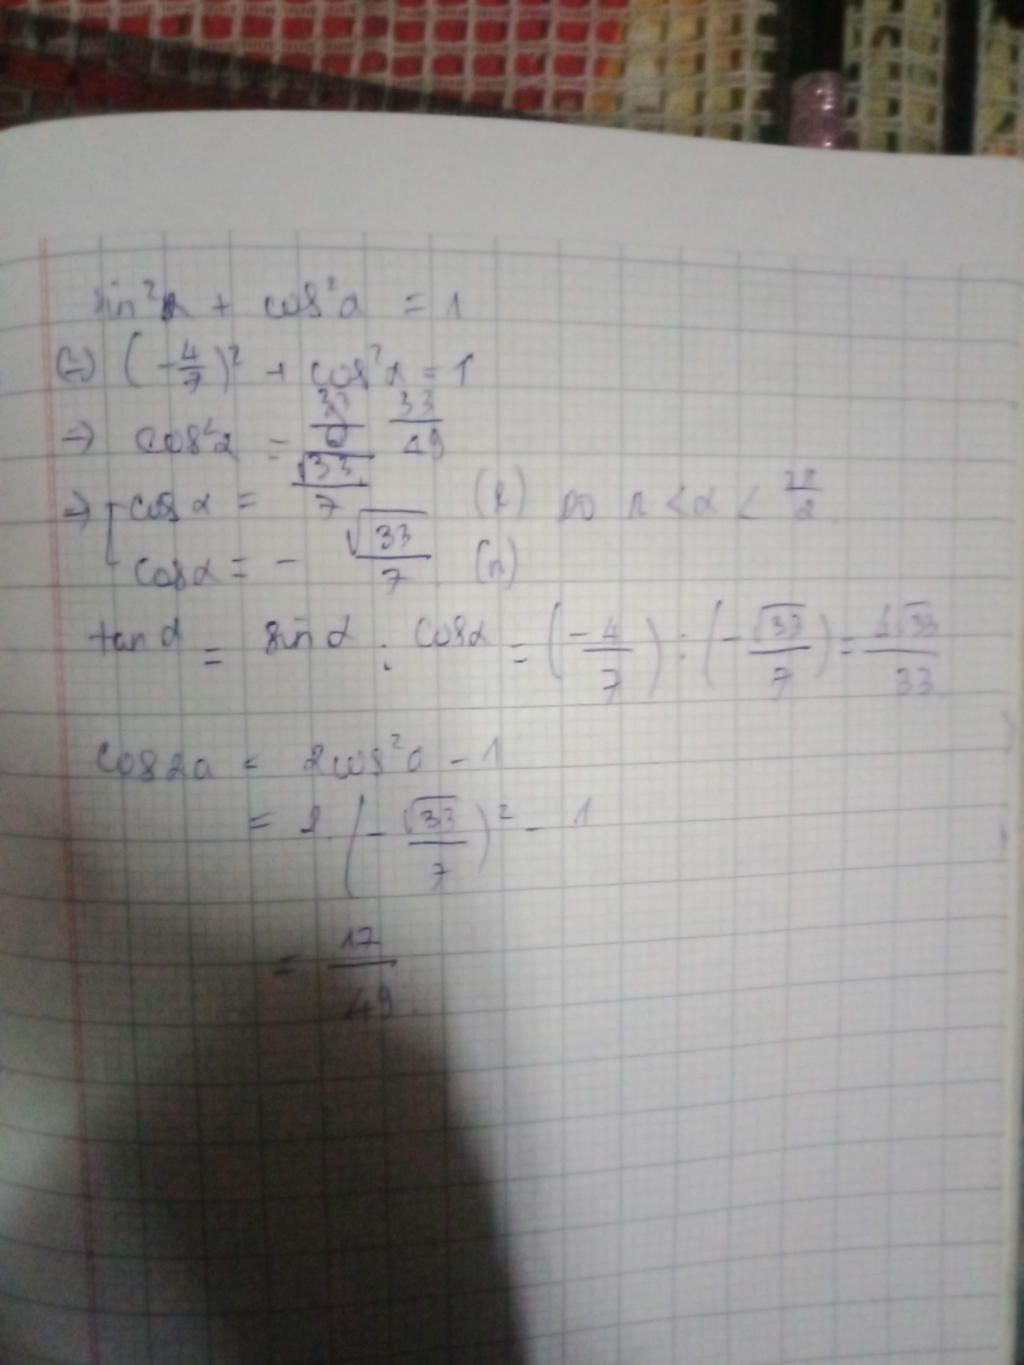 sin²α + cos²α = 1
(=) (-4/7)² + cos²α = 1
=> cos²α = 33/49
=> [ cosα = √33/7 (l) do π < α < 3π/2
cosα = - √33/7 (n)
tanα = sinα : cosα = (-4/7) : (-√33/7) = 4√33/33
cos2α = 2cos²α - 1
= 2. (-√33/7)² - 1
= 17/49.